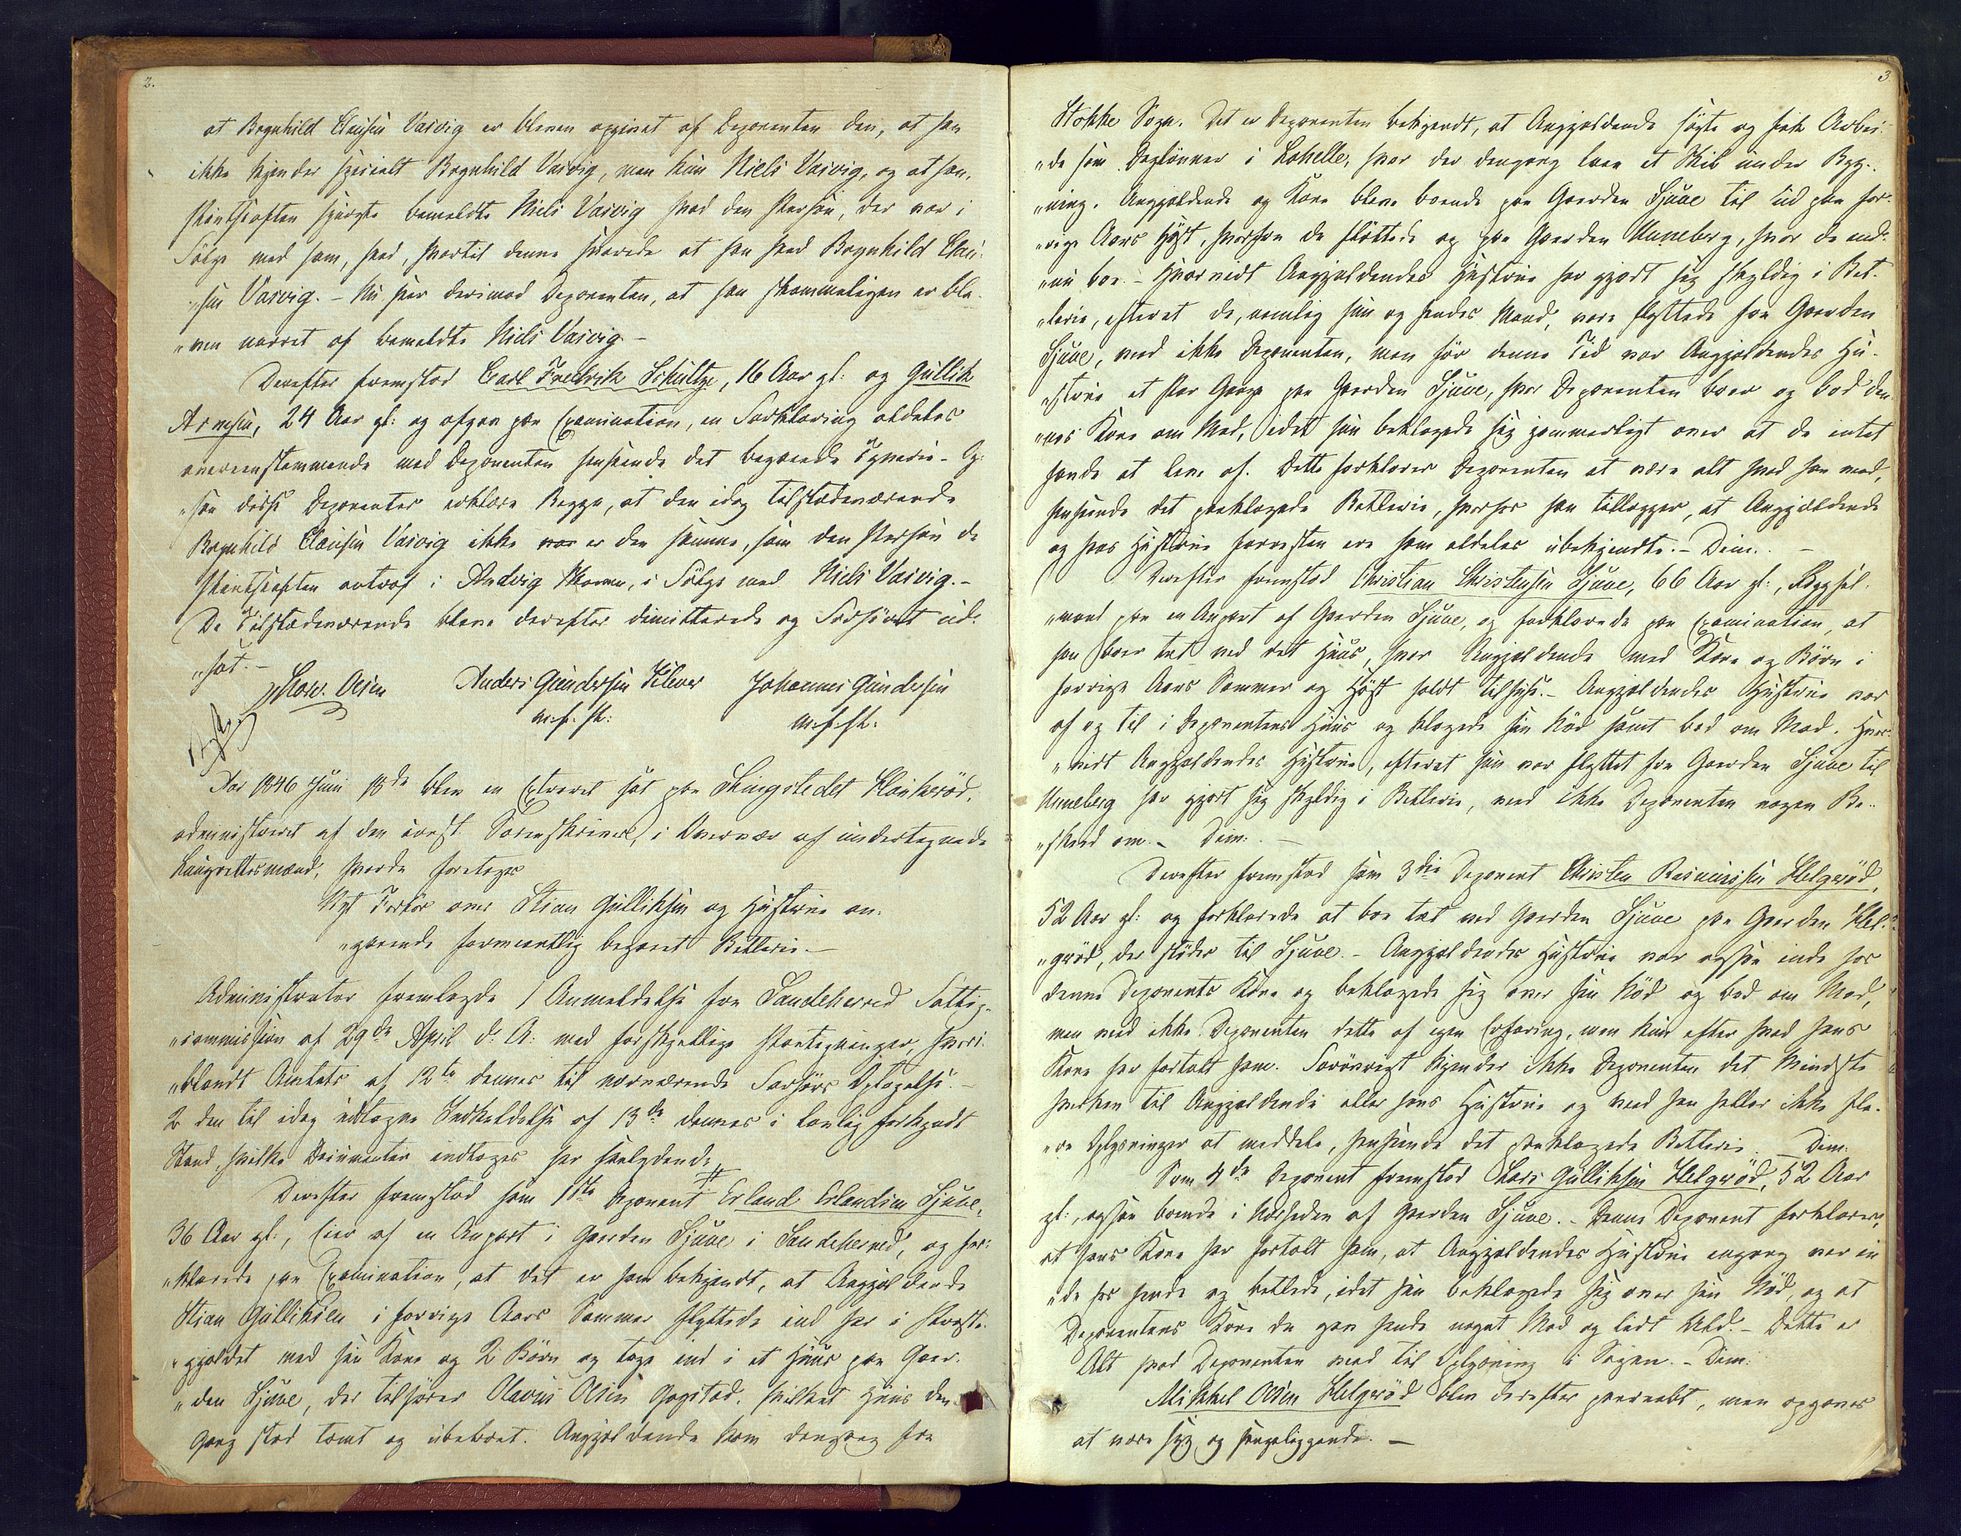 2.
at Bognhild Clausen Vasvig er bleven opgivet af Deponenten den, at han
ikke kjender specielt Bognhild Vasvig, men kun Niels Vasvig, og at han,
spurgte bemeldte Niels Vasvig hvad den Person, der var i
Følge med ham, hed, hvortil denne svarede at han hed Bognhild Clau-
„sen Vasvig. – Nu seer derimod Deponenten, at han er ble-
„ven narret af bemeldte Niels Vasvig –
Derefter fremstod Carl Fredrik Schultze, 16 Aar gl: og Gullik
Arnesen, 24 Aar gl: og afgav paa Examination, en Forklaring aldeles
overeenstemmende med Deponenten henseende det begaaede Tyverie – Og-
„saa disse Deponenter erklære Begge, at den idag tilstædeværende
Bognhild Clausen Vasvig ikke var er den samme, som den Person de
antraf i Andvig Skoven, i Følge med Niels Vasvig. –
De Tilstædeværende bleve derefter dimitterede og Forhøret ud-
„sat. –
Olsen Anders Gundersen Klever Johannes Gundersen
m. f. P. m. f. P.
Aar 1846 Juni 18de blev en Extraret sat paa Thingstedet Haukerød,
administreret af den const. Sorenskriver, i Overvær af undertegnede
Laugrettesmænd, hvorda foretoges
Nyt Forhør over Stian Gulliksen og Hustrue an-
„gaaende formeentlig begaaet Betlerie. –
Administrator fremlagde 1 Anmeldelse fra Sandeherred Fattig-
„commission af 29de April d: A: med forskjellige Paategninger, hvori-
„blandt Amtets af 12te dennes til nærværende Forhørs Optagelse. –
2 den til idag udtagne Indkaldelse af 13de dennes i lovlig forkyndt
Stand, hvilke Documenter indtages her saalydende
Derefter fremstod som 1ste Deponent Erland Erlandsen Hjuve,
36 Aar gl:, Eier af en Anpart i Gaarden Hjuve i Sandeherred, og for-
„klarede paa Examination, at det er ham bekjendt, at Angjældende
Stian Gulliksen i forrige Aars Sommer flyttede ind her i Præste-
„gjældet med sin Kone og 2 Børn og toge ind i et Huus paa Gaar-
„den Hjuve, der tilhører Olavus Olsen Gogstad, hvilket Huus den
Gang stod tomt og ubeboet. Angjældende kom dengang fra
3
Stokke Sogn. Det er Deponenten bekjendt, at Angjældende søgte og fik Arbei-
„de som Daglønner i Lahelle, hvor der dengang laae et Skib under Byg-
„ning. Angjældende og Kone bleve boende paa Gaarden Hjuve til ud paa for-
„rige Aars Høst, hvorfra de flyttede og paa Gaarden Unneberg, hvor de end-
„nu boe. – Hvorvidt Angjældendes Hustrue har gjort sig skyldig i Bet-
„lerie, efterat de, nemlig hun og hendes Mand, vare flyttede fra Gaarden
Hjuve, veed ikke Deponenten, men før denne Tid var Angjældendes Hu-
„strue et Par Gange paa Gaarden Hjuve, hvor Deponenten boer og bad den-
„nes Kone om Mad, idet hun beklagede sig jammerligt over at de intet
havde at leve af. Dette forklarer Deponenten at være alt hvad han veed,
henseende det paaklagede Betlerie, hvorhos han tillægger, at Angjældende
og hans Hustrue forresten ere ham aldeles ubekjendte. – Dim. –
Derefter fremstod Christian Christensen Hjuve, 66 Aar gl:, Bygsel-
„mand paa en Anpart af Gaarden Hjuve, og forklarede paa Examination, at
han boer tæt ved det Huus, hvor Angjældende med Kone og Børn i
forrige Aars Sommer og Høst holdt tilhuse. – Angjældendes Hustrue var
af og til i Deponentens Huus og klagede sin Nød samt bad om Mad. Hvor-
„vidt Angjældendes Hustrue, efterat hun var flyttet fra Gaarden Hjuve til
Unneberg har gjort sig skyldig i Betlerie, veed ikke Deponenten nogen Be-
„skeed om. – Dim: –
Derefter fremstod som 3die Deponent Christen Rasmussen Helgerød,
52 Aar gl: og forklarede at boe tæt ved Gaarden Hjuve paa Gaarden Hel-
„gerød, der støder til Hjuve. – Angjældendes Hustrue var ogsaa inde hos
denne Deponents Kone og beklagede sig over sin Nød og bad om Mad,
men veed ikke Deponenten dette af egen Erfaring, men kun efter hvad hans
Kone har fortalt ham. Forøvrigt kjender ikke Deponenten det Mindste
hverken til Angjældende eller hans Hustrue og veed han heller ikke fle-
„re Oplysninger at meddele, henseende det paaklagede Betlerie. – Dim:
Som 4de Deponent fremstod Lars Gulliksen Helgerød, 52 Aar
gl:, ogsaa boende i Nærheden af Gaarden Hjuve. – Denne Deponent forklarer,
at hans Kone har fortalt ham, at Angjældendes Hustrue engang var in-
„de hos hende og betlede, idet hun beklagede sig over sin Nød, og at
Deponentens Kone da gav hende noget Mad og lidt Uld. – Dette er
Alt hvad Deponenten veed til Oplysning i Sagen. – Dim:
Mikkel Olsen Helgerød blev derefter paaraabt, men opgaves
at være syg og sengeliggende. –